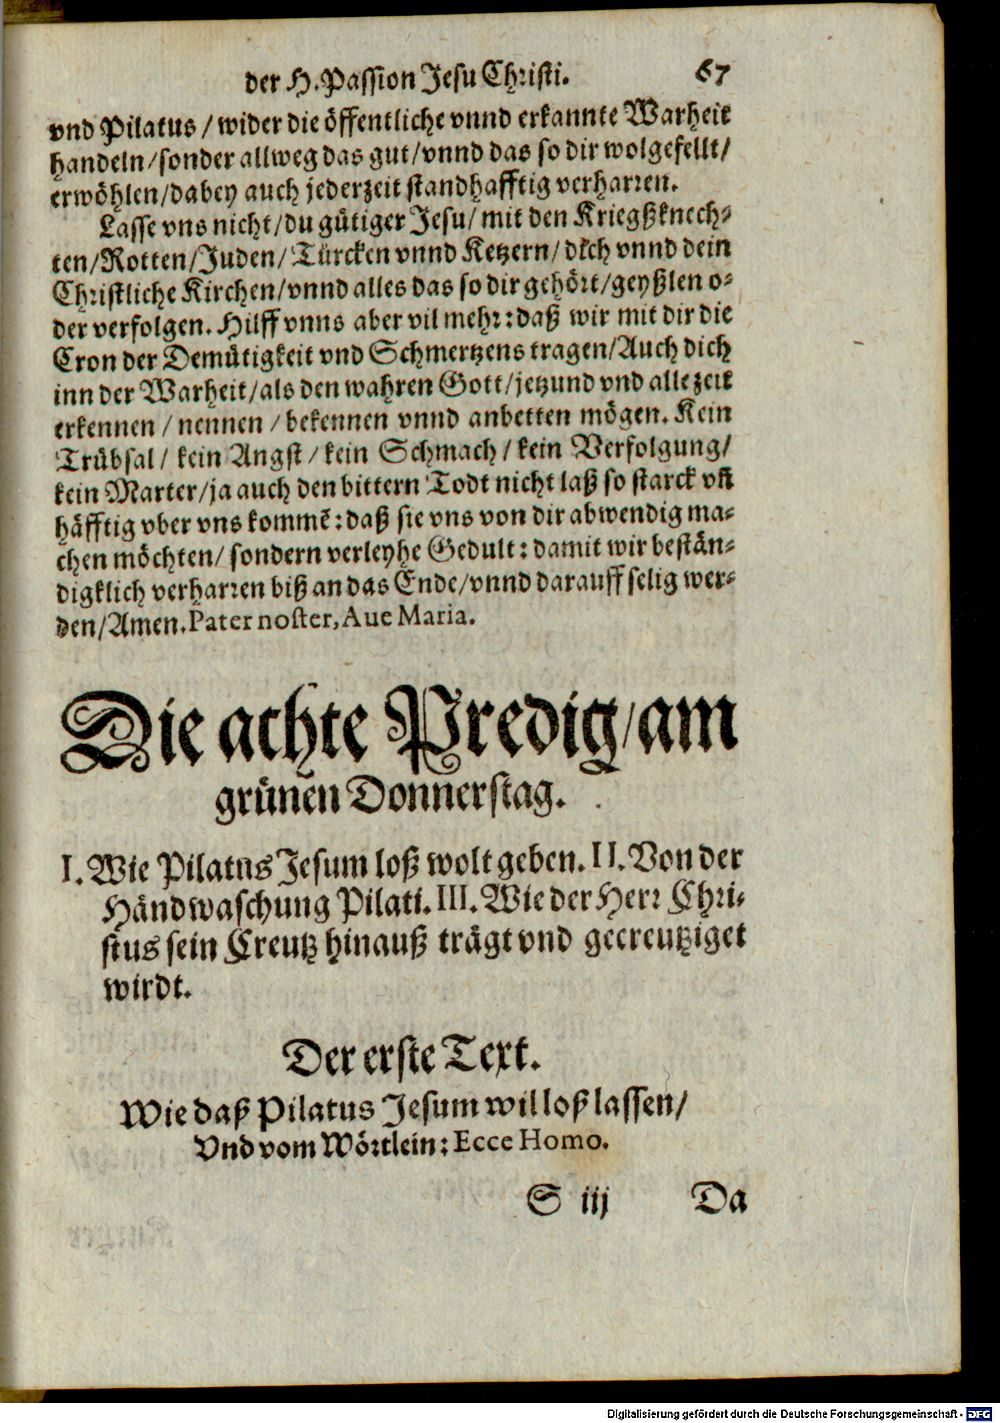 der H. Passion Jesu Christi. 67
vnd Pilatus / wider die öffentliche vnnd erkannte Warheit
handeln / sonder allweg das gut / vnnd das so dir wolgefellt /
erwöhlen / dabey auch jederzeit standhafftig verharren.
Lasse vns nicht / du gütiger Jesu / mit den Kriegßknech⸗
ten / Rotten / Juden / Türcken vnnd Ketzern / dich vnnd dein
Christliche Kirchen / vnnd alles das so dir gehört / geyßlen o⸗
der verfolgen. Hilff vnns aber vil mehr: daß wir mit dir die
Cron der Demütigkeit vnd Schmertzens tragen / Auch dich
inn der Warheit / als den wahren Gott / jetzund vnd alle zeit
erkennen / nennen / bekennen vnnd anbetten mögen. Kein
Trübsal / kein Angst / kein Schmach / kein Verfolgung /
kein Marter / ja auch den bittern Todt nicht laß so starck vñ
häfftig vber vns kommẽ: daß sie vns von dir abwendig ma⸗
chen möchten / sondern verleyhe Gedult: damit wir bestän⸗
digklich verharren biß an das Ende / vnnd darauff selig wer⸗
den / Amen. Pater noster, Aue Maria.
Die achte Predig / am
grünen Donnerstag.
I. Wie Pilatus Jesum loß wolt geben. II. Von der
Händwaschung Pilati. III. Wie der Herr Chri⸗
stus sein Creutz hinauß trägt vnd gecreutziget
wirdt.
Der erste Text.
Wie daß Pilatus Jesum wil loß lassen /
Vnd vom Wörtlein: Ecce Homo.
S iij Da
Digitalisierung gefördert durch die Deutsche Forschungsgemeinschaft - DFG